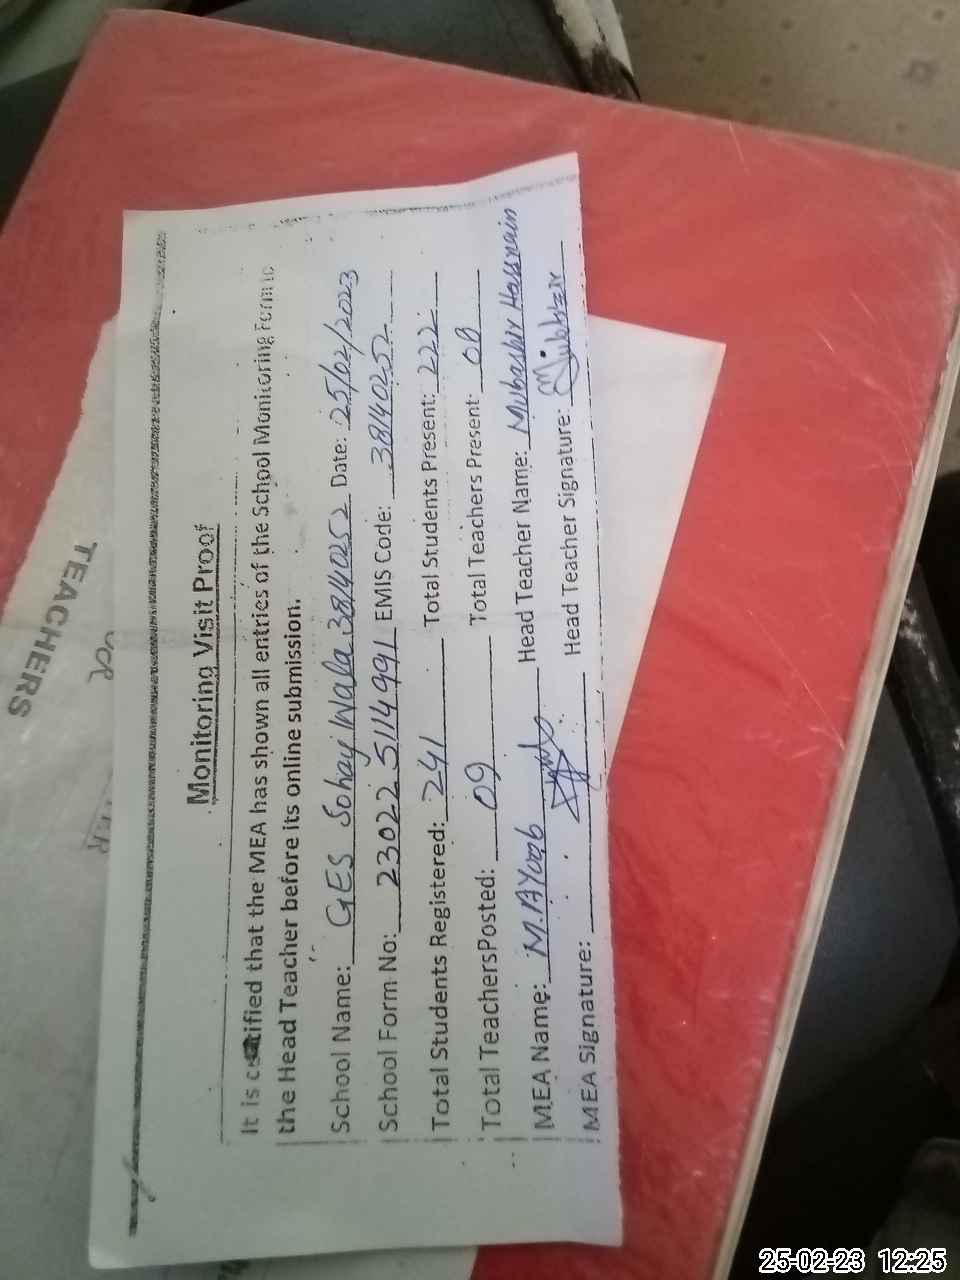 Monitoring Visit Proof
It is certified that the MEA has shown all entries of the School Monitoring Form to
the Head Teacher before its online submission.
School Name: GES Sohay Wala 38140252 Date: 25/02/2023
School Form No: 230225114991 EMIS Code: 38140252
Total Students Registered: 241 Total Students Present: 222
Total TeachersPosted: 09 Total Teachers Present: 08
MEA Name: M.AYoob Head Teacher Name: Mubashir Hassnain
MEA Signature: Head Teacher Signature:
TEACHERS
25-02-23 12:25